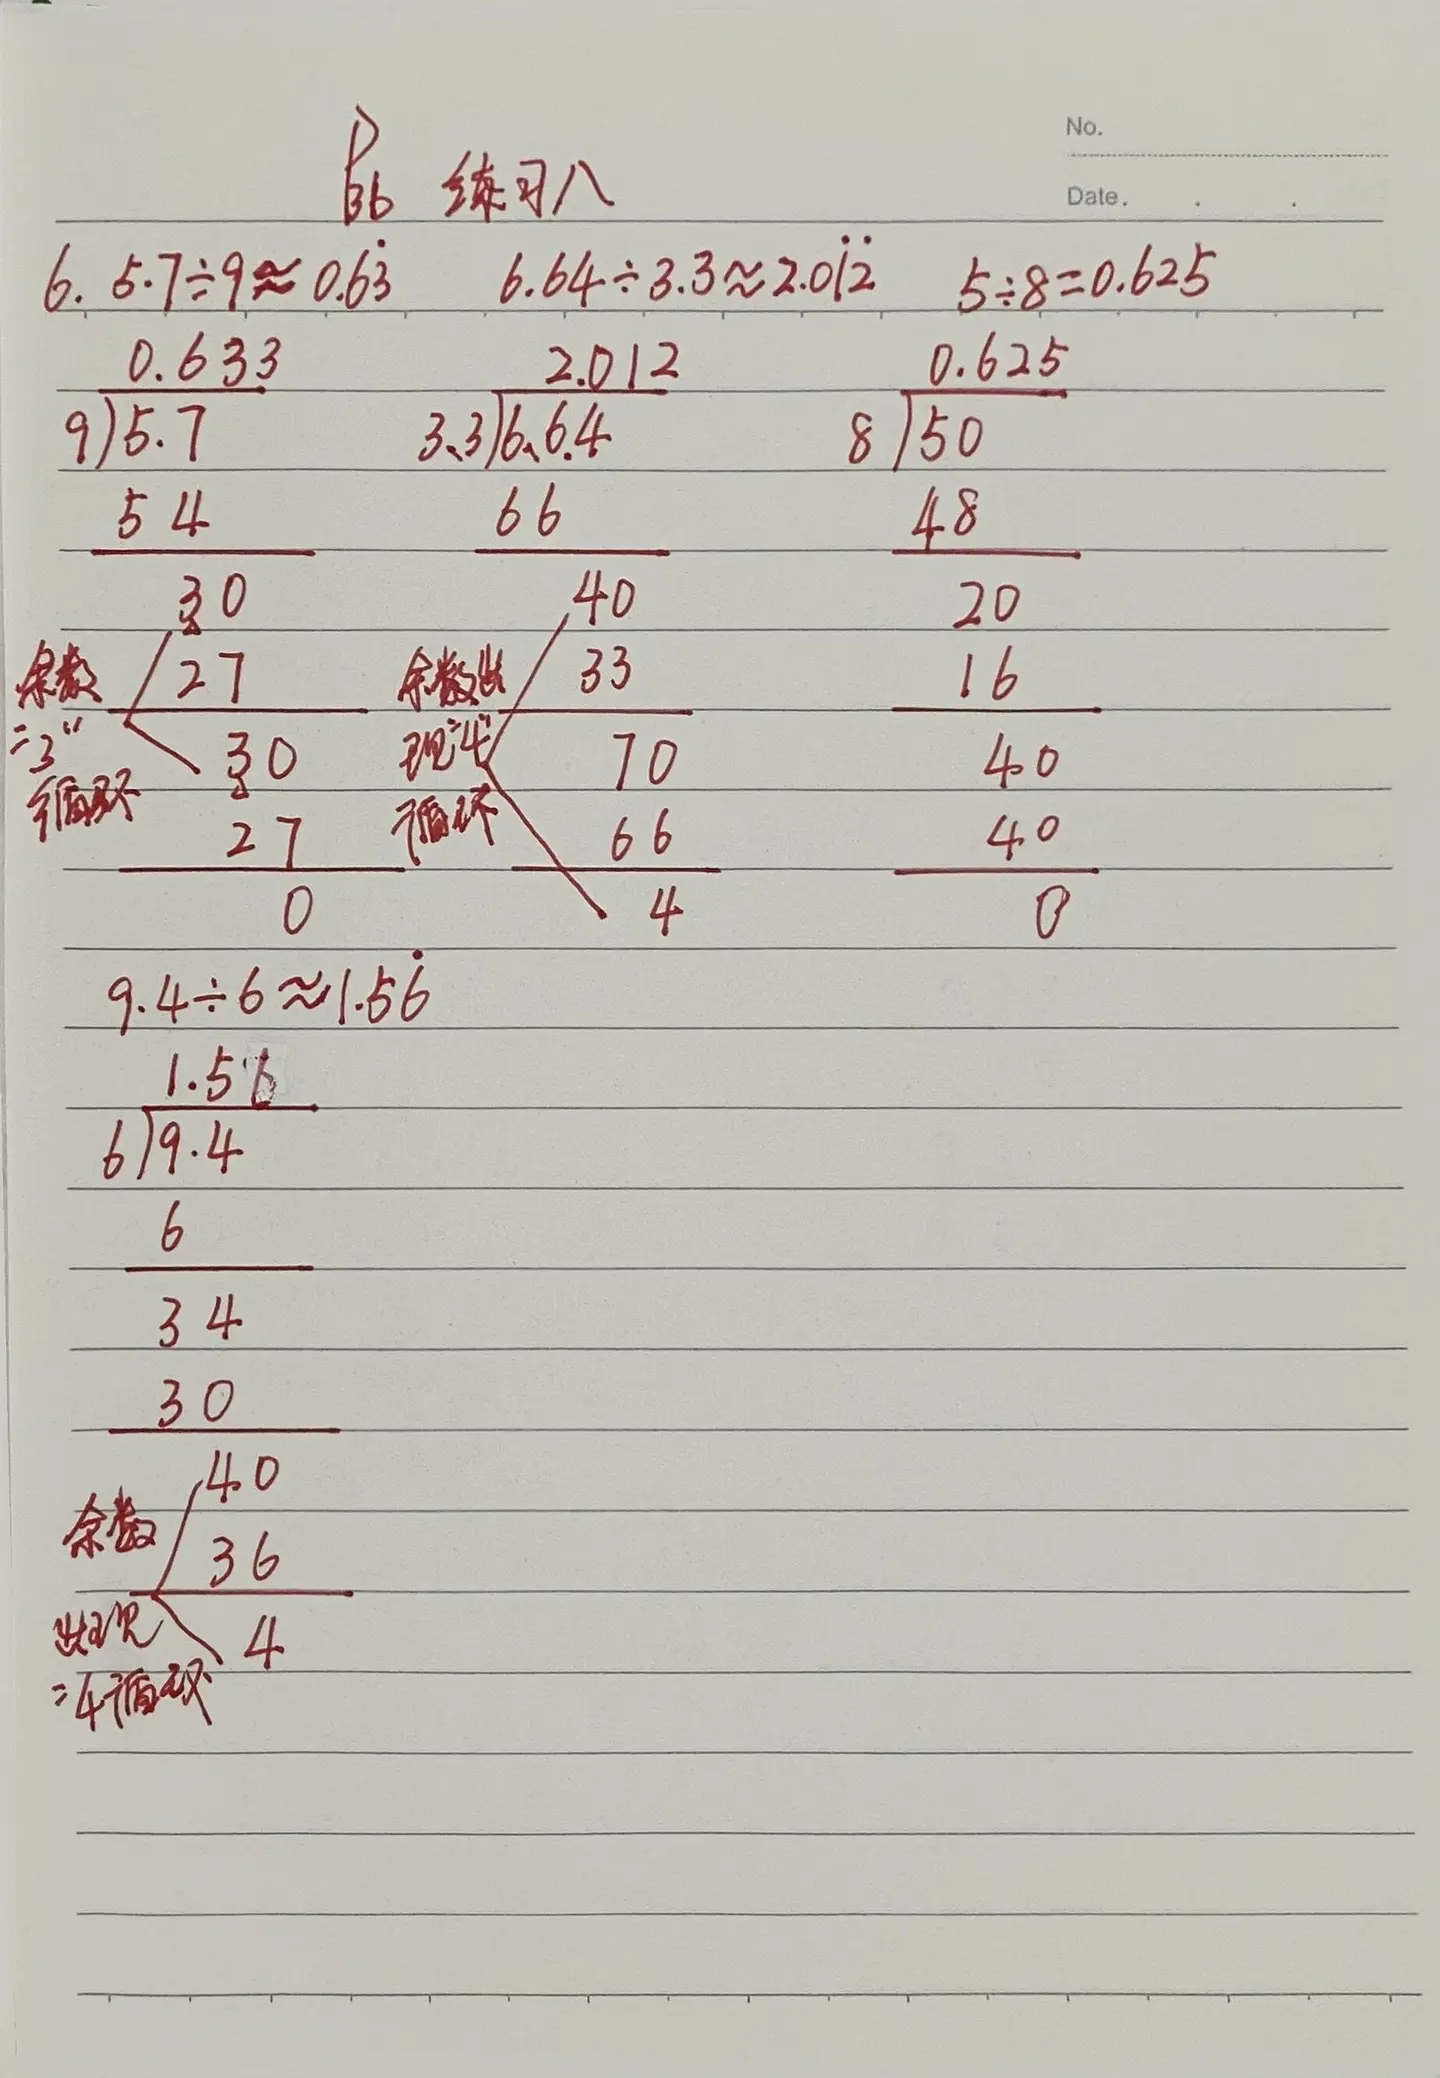 No.
Date.
P36 练习八
6. 5.7÷9≈0.63̇ 6.64÷3.3≈2.01̇2̇ 5÷8=0.625
0.633 2.012 0.625
9)5.7 3.3)6.6.4 8)50
54 66 48
30 40 20
27 33 16
余数 余数出
30 70 40
"3" 现"4"
循环 循环
27 66 40
0 4 0
9.4÷6≈1.56̇
1.56
6)9.4
6
34
30
40
余数
36
4
=4循环